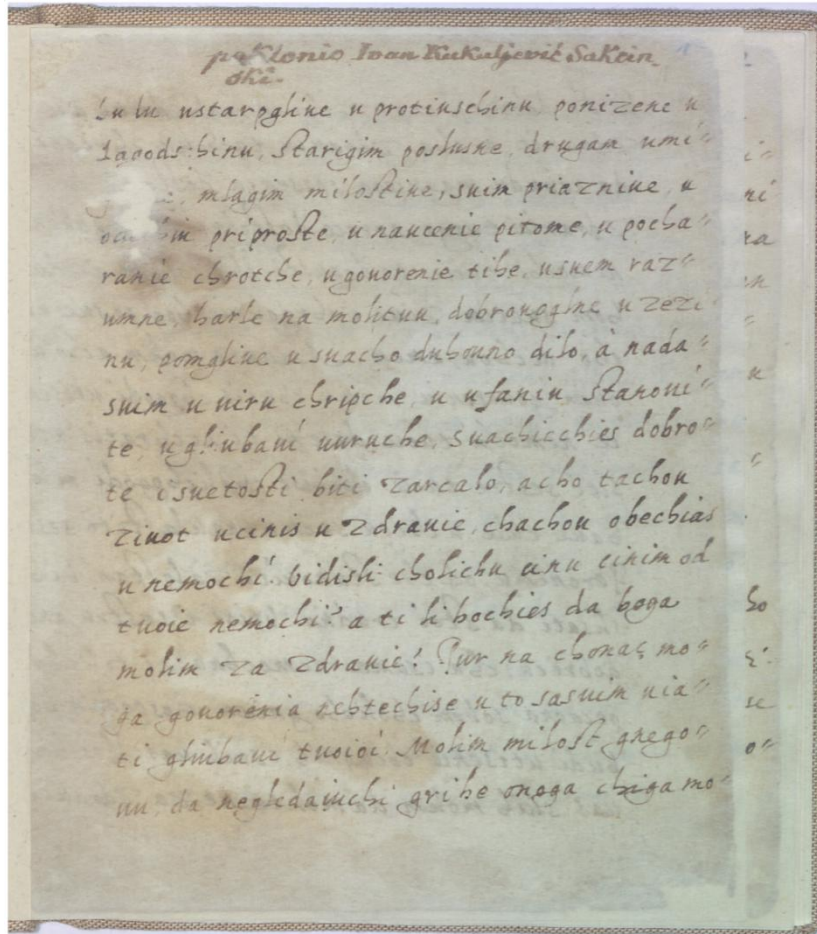 poklonio Ivan Kukuljević Sakcin
ski.
lu lu ustarpgliue u protiuschinu, ponizene u
Iagods binu, starigim poslusne, drugam umi"
mlagim milostiue, suim priazniue, u
priproste, u naucenie pitome, u pocha"
ranie chrotche, u gouorenie tihe, u suem raz"
umne, harle na molituu, dobrouoglne u zezi"
nu, pomgliue u suacho duhouno dilo, à nada"
suim u uiru chripche, u ufaniu stanoui"
te, u gliubaui uuruche, suachicchies dobro"
te i suetosti biti zarcalo, acho tachou
ziuot ucinis u zdrauie, chachou obechias
u nemochi! bidisli cholichu cinu cinim od
tuoie nemochi? a ti li hochies da boga
molim za zdrauie! Tur na chonaz mo"
ga gouorenia nehtechise u to sasuim uia"
ti gliubaui tuoioi. Molim milost gnego"
uu, da negledaiuchi grihe onoga chiga mo"